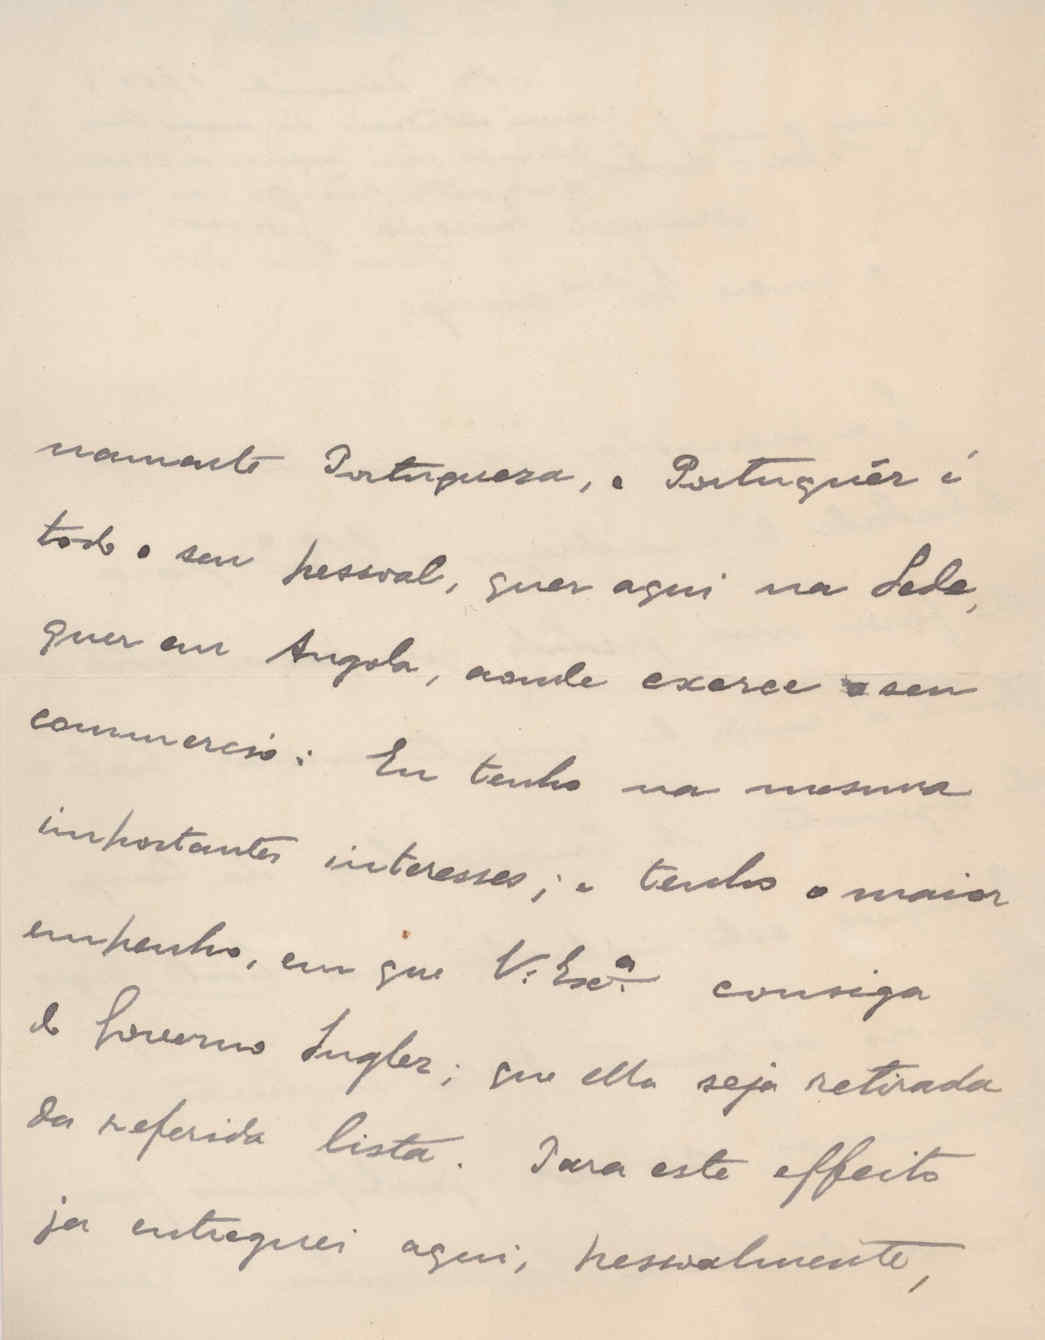 namente Portugueza, e Portuguêz é
todo o seu pessoal, quer aqui na Séde,
quer em Angola, aonde exerce o seu
commercio: Eu tenho na mesma
importantes interesses; e tenho o maior
empenho, em que V. Exª. consiga
do Governo Inglez; que ella seja retirada
da referida lista. Para este effeito
ja entreguei aqui, pessoalmente,